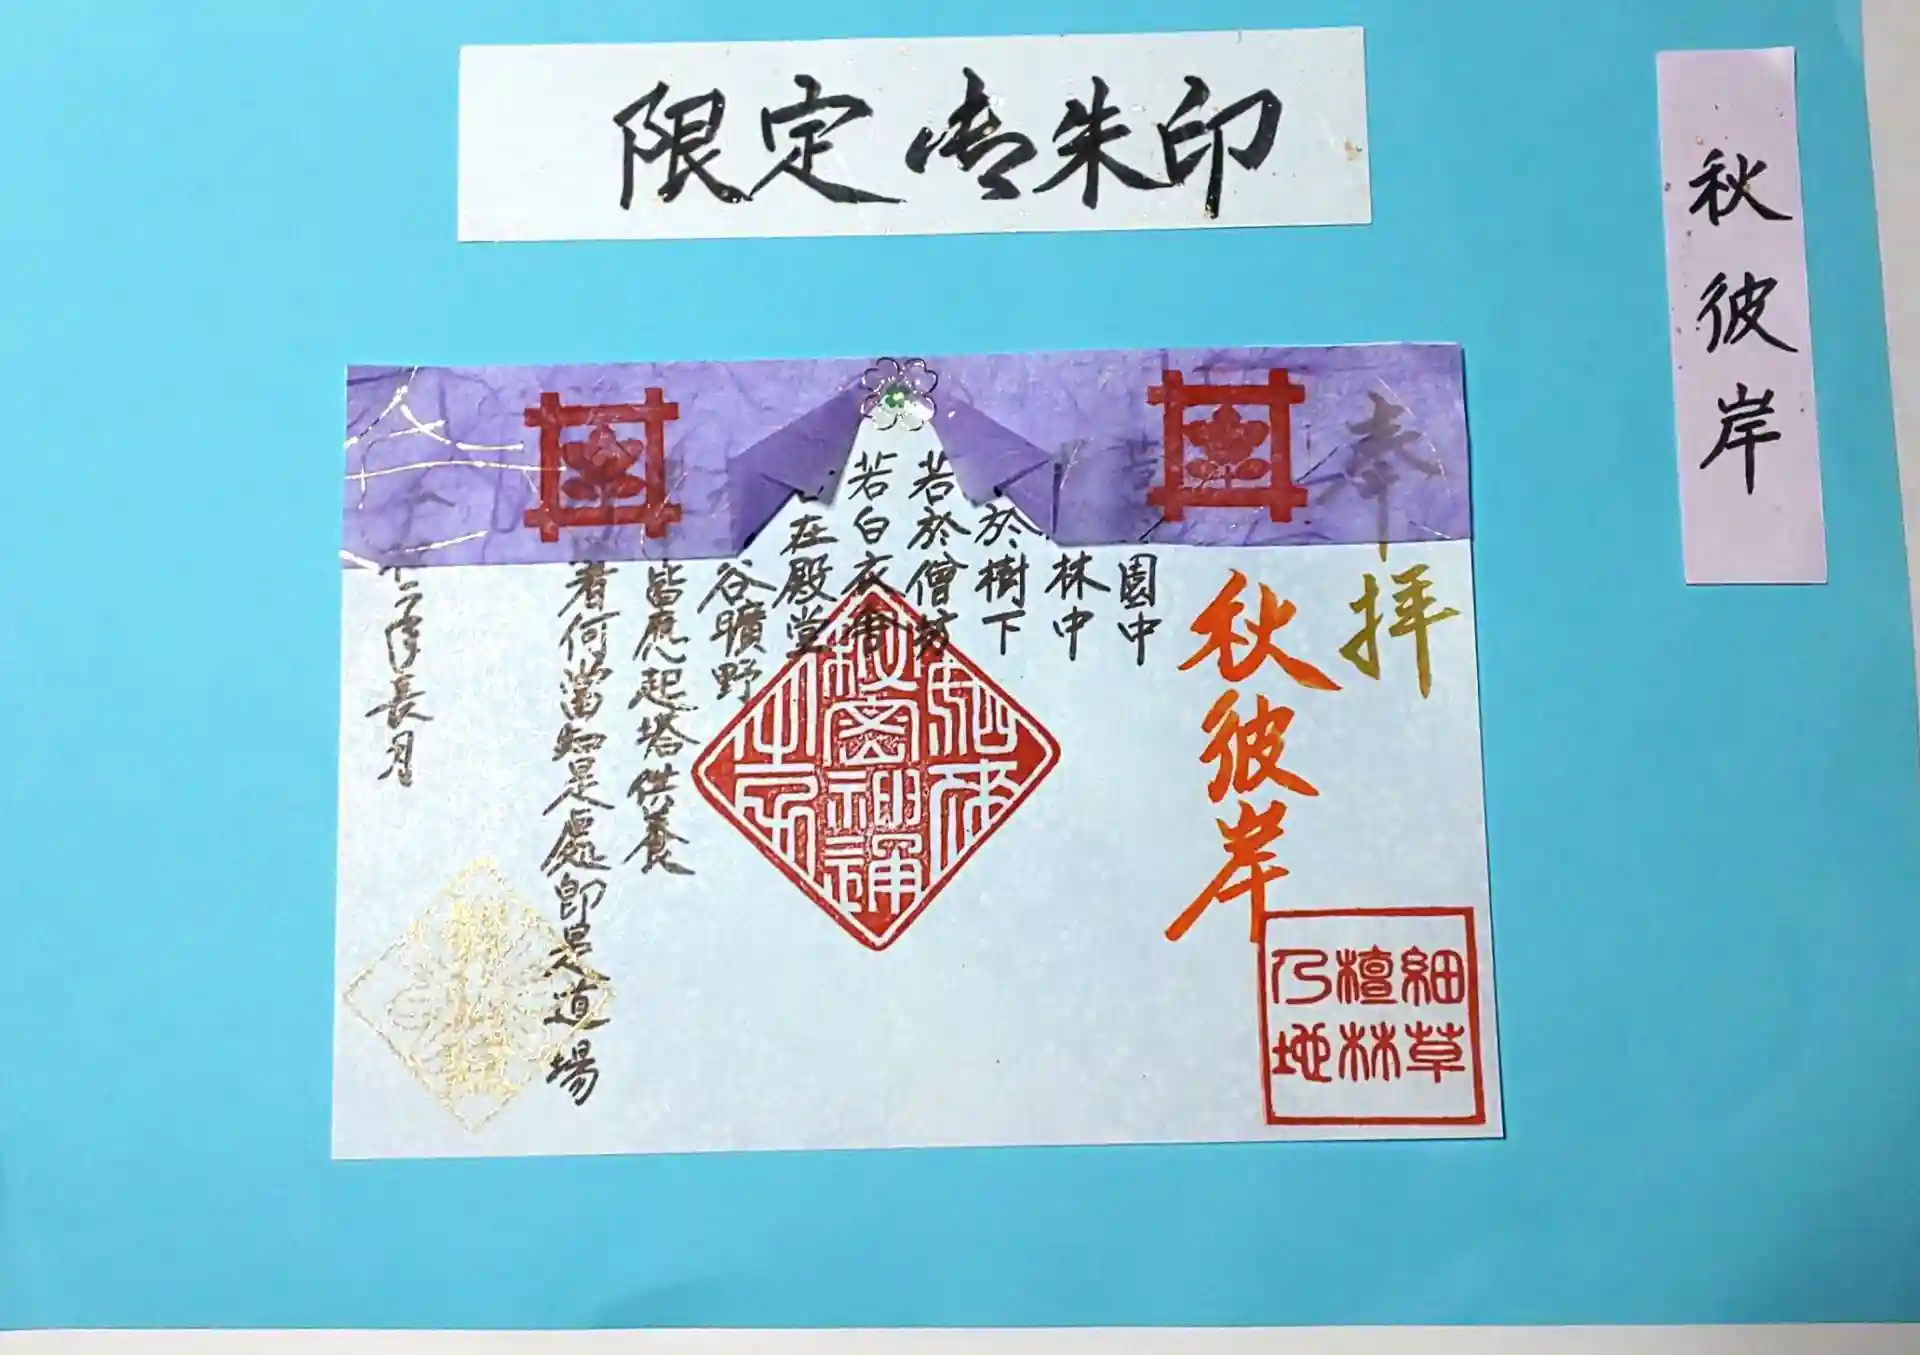 限定御朱印
秋彼岸
奉拝
秋彼岸
園中
林中
於樹下
若於僧坊
若白衣舎
在殿堂
谷曠野
皆應起塔供養
者何當知是處即是道場
長月
如来
秘密神通
之力
細草
檀林
乃地